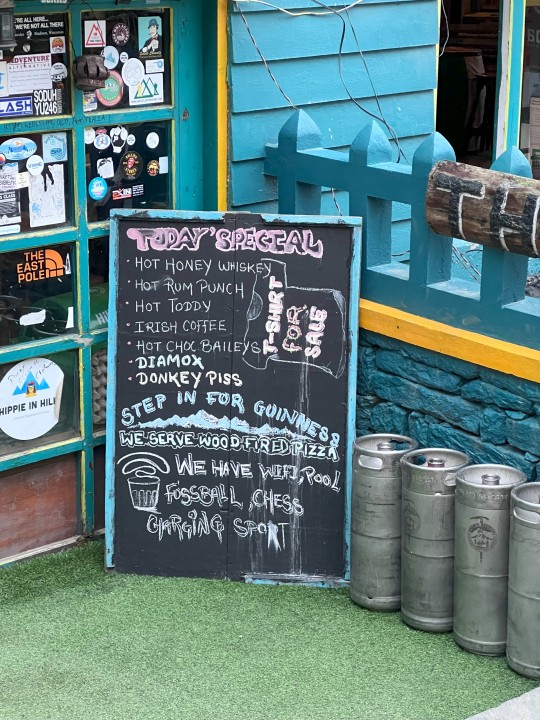 WE'RE ALL HERE!
WE'RE NOT ALL THERE
ADVENTURE
ALTERNATIVE
SPLASH
SODUH
YU246
THE EAST
POLE
HIPPIE IN HILL
TODAY'S SPECIAL
• HOT HONEY WHISKEY
• HOT RUM PUNCH
• HOT TODDY
• IRISH COFFEE
• HOT CHOC BAILEYS
• DIAMOX
• DONKEY PISS
T-SHIRT
FOR
SALE
STEP IN FOR GUINNESS &
WE SERVE WOOD FIRED PIZZA
WE HAVE WIFI, POOL
FOSSBALL, CHESS
CHARGING SPORT
TH